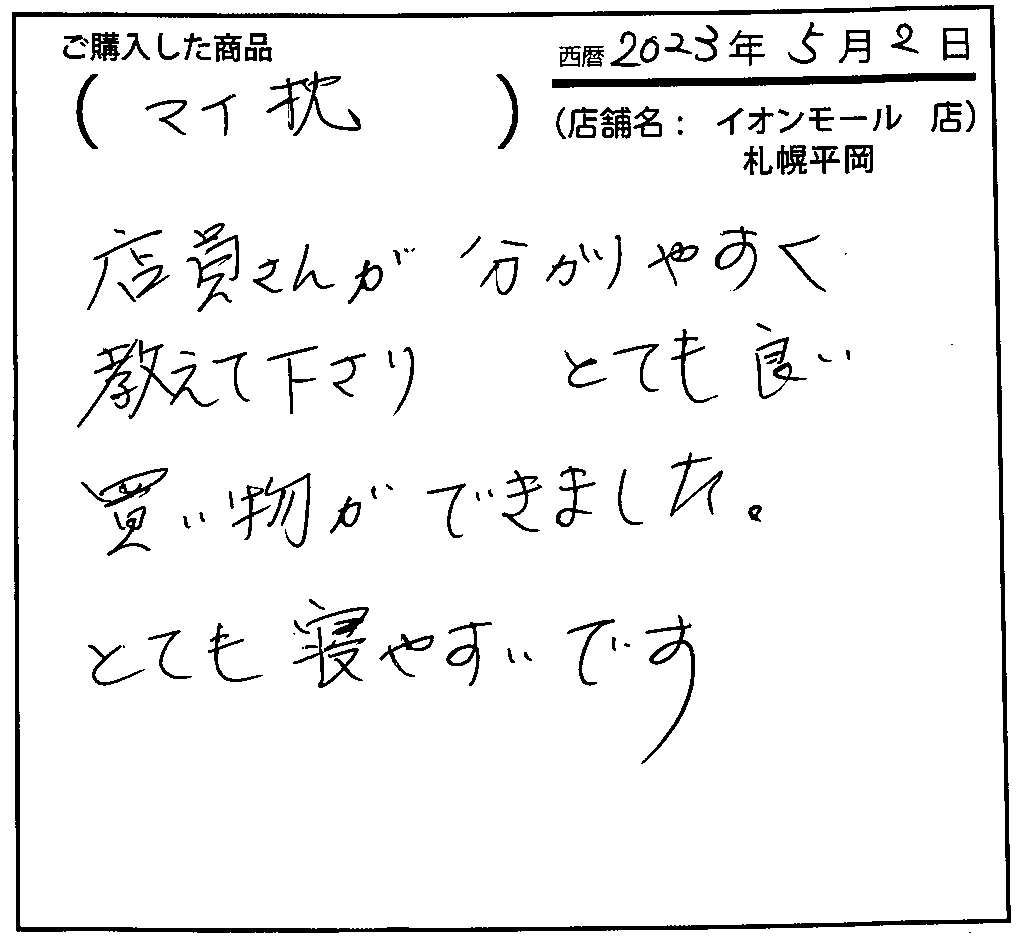 ご購入した商品
西暦 2023年 5月 2日
( マイ枕 )
(店舗名: イオンモール 店)
札幌平岡
店員さんが 分かりやすく
教えて下さり とても良い
買い物ができました。
とても寝やすいです